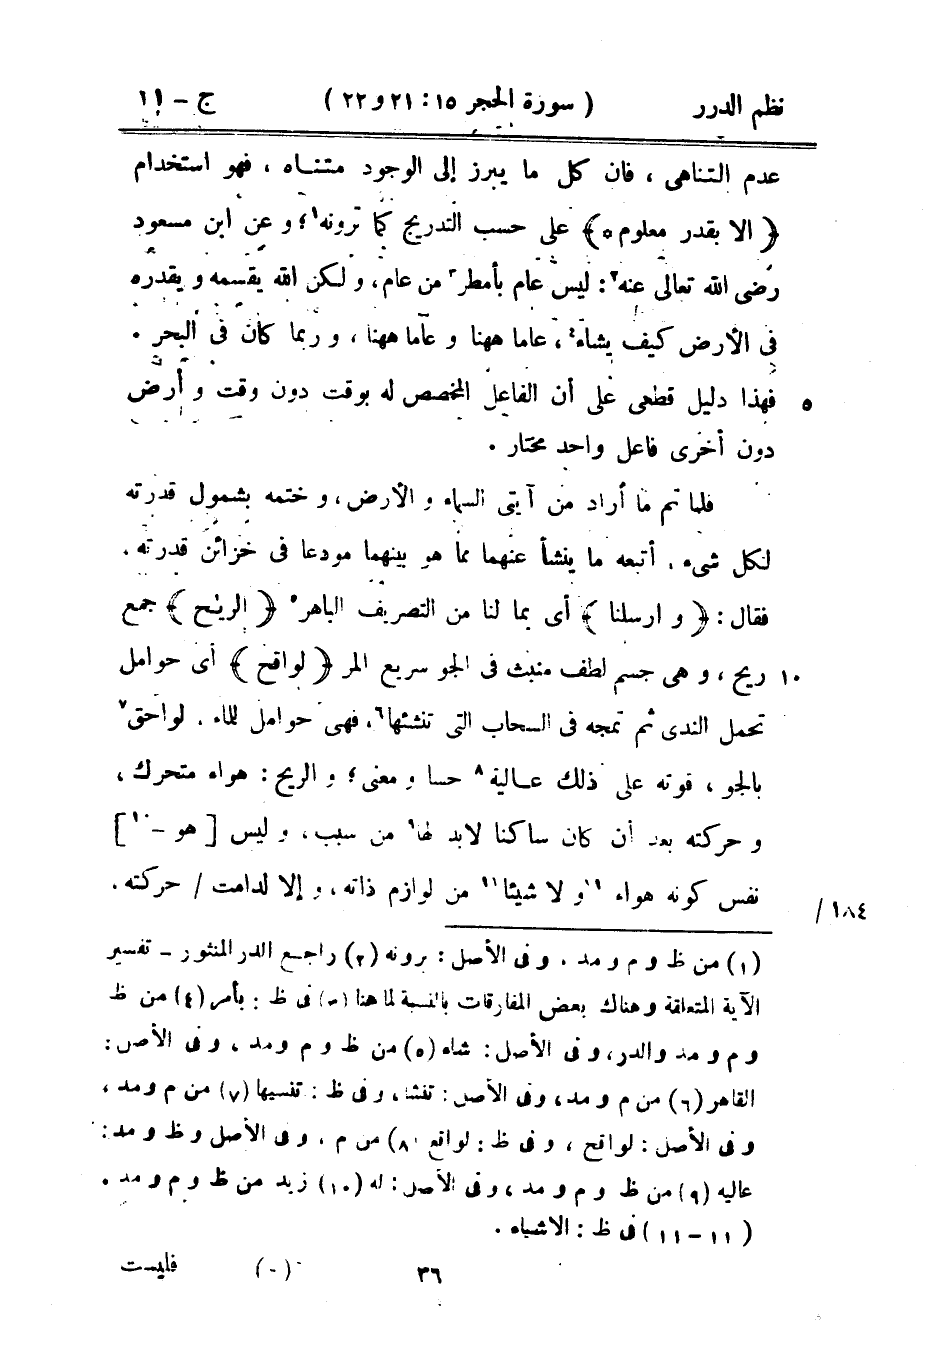 نظم الدرر ( سورة الحجر ١٥ : ٢١ و ٢٢ ) ج – ١١
عدم التناهى ، فان كل ما يبرز إلى الوجود متناه ، فهو استخدام
﴿ الا بقدر معلوم ٥ ﴾ على حسب التدريج كما ترونه١ ؛ و عن ابن مسعود
رضى الله تعالى عنه٢ : ليس عام بأمطر٣ من عام ، و لكن الله يقسمه و يقدره
فى الأرض كيف يشاء٤ ، عاما ههنا و عاما ههنا ، و ربما كان فى البحر .
٥ فهذا دليل قطعى على أن الفاعل المخصص له بوقت دون وقت و أرض
دون أخرى فاعل واحد مختار .
فلما تم ما أراد من آيتى السماء و الأرض ، و ختمه بشمول قدرته
لكل شىء . أتبعه ما ينشأ عنهما مما هو بينهما مودعا فى خزائن قدرته .
فقال : ﴿ و ارسلنا ﴾ أى بما لنا من التصريف الباهر٥ ﴿ الريٰح ﴾ جمع
١٠ ريح ، و هى جسم لطف منبث فى الجو سريع المر ﴿ لواقح ﴾ أى حوامل
تحمل الندى ثم تمجه فى السحاب التى تنشئها٦ ، فهى حوامل للماء . لواحق٧
بالجو ، قوته على ذلك عالية٨ حسا و معنى ؛ و الريح : هواء متحرك ،
و حركته بعد أن كان ساكنا لابد لها٩ من سبب ، و ليس [ هو –١٠ ]
نفس كونه هواء ١١و لا شيئا١١ من لوازم ذاته ، و إلا لدامت / حركته .
/ ١٨٤
(١) من ظ و م و مد . و فى الأصل : برونه (٢) راجع الدر المنثور – تفسير
الآية المتعلقة و هناك بعض المفارقات بالنسبة لما هنا (٣) فى ظ : بأمر (٤) من ظ
و م و مد والدر ، و فى الأصل : شاه (٥) من ظ و م و مد . و فى الأصل :
القاهر (٦) من م و مد ، و فى الأصل : تفشا ، و فى ظ : تنسيها (٧) من م و مد ،
و فى الأصل : لواقح ، و فى ظ : لواقع (٨) من م ، و فى الأصل و ظ و مد :
عاليه (٩) من ظ و م و مد ، و فى الأصل : له (١٠) زيد من ظ و م و مد .
(١١ – ١١) فى ظ : الاشياء .
٣٦ (-) فليست